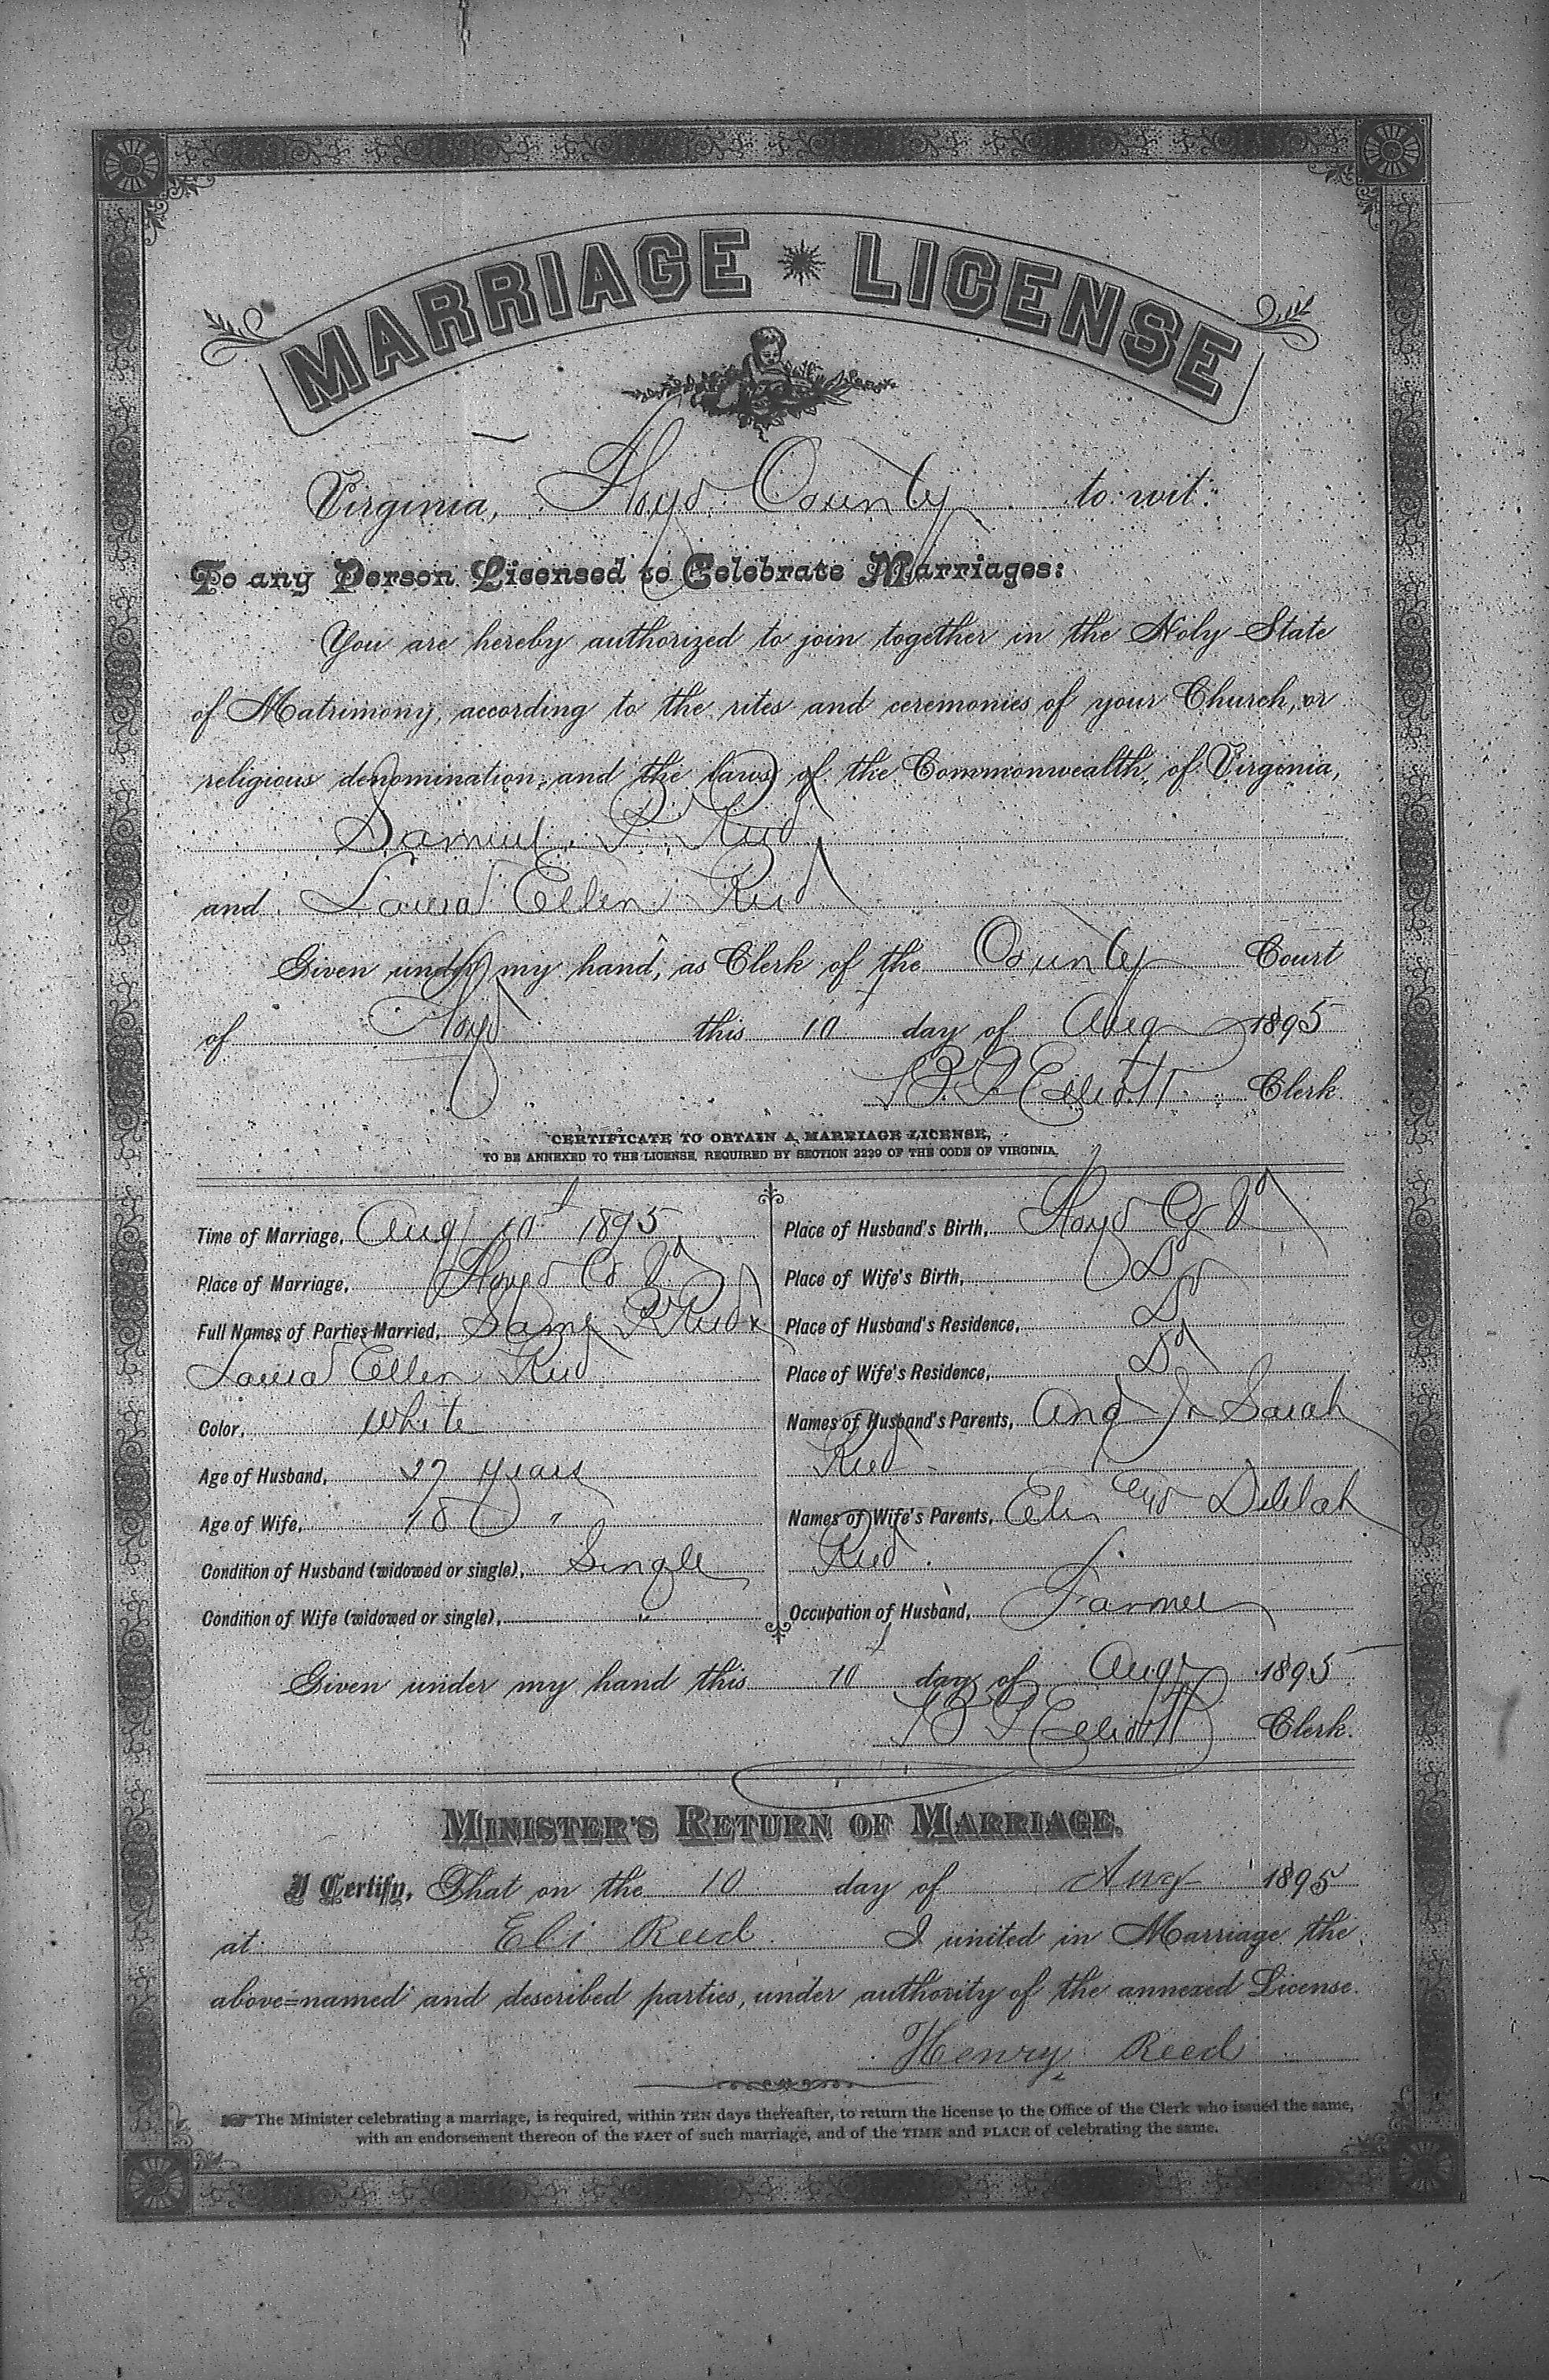 MARRIAGE LICENSE
Virginia, Floyd County to wit:
To any Person Licensed to Celebrate Marriages:
You are hereby authorized to join together in the Holy State
of Matrimony, according to the rites and ceremonies of your Church, or
religious denomination, and the laws of the Commonwealth of Virginia,
Samuel P. Reed
and Laura Ellen Reed
Given under my hand, as Clerk of the County Court
of Floyd this 10 day of Aug 1895
B. P. Elliott Clerk.
CERTIFICATE TO OBTAIN A MARRIAGE LICENSE,
TO BE ANNEXED TO THE LICENSE, REQUIRED BY SECTION 2229 OF THE CODE OF VIRGINIA.
Time of Marriage, Aug 10 1895
Place of Marriage, Floyd Co Va
Full Names of Parties Married, Saml P Reed &
Laura Ellen Reed
Color, White
Age of Husband, 27 years
Age of Wife, 18 "
Condition of Husband (widowed or single), Single
Condition of Wife (widowed or single), "
Place of Husband's Birth, Floyd Co Va
Place of Wife's Birth, Do
Place of Husband's Residence, Do
Place of Wife's Residence, Do
Names of Husband's Parents, And Sarah
Reed
Names of Wife's Parents, Eli and Delilah
Reed.
Occupation of Husband, Farmer
Given under my hand this 10 day of Aug 1895
B P Elliott Clerk.
MINISTER'S RETURN OF MARRIAGE.
I Certify, That on the 10 day of Aug 1895
at Eli Reed I united in Marriage the
above-named and described parties, under authority of the annexed License.
Henry Reed
The Minister celebrating a marriage, is required, within TEN days thereafter, to return the license to the Office of the Clerk who issued the same,
with an endorsement thereon of the FACT of such marriage, and of the TIME and PLACE of celebrating the same.